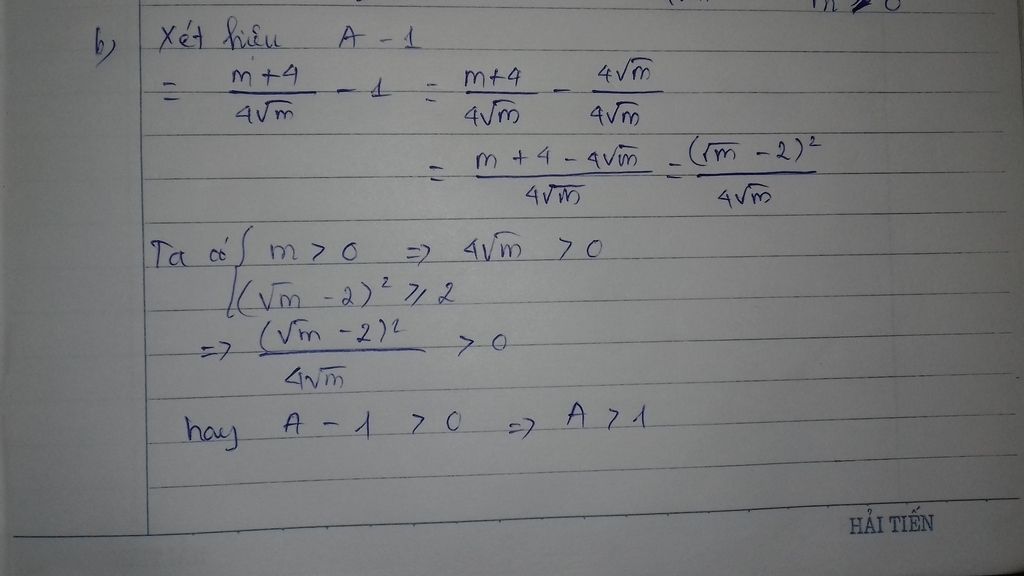 m > 0
b) Xét hiệu A - 1
= \frac{m+4}{4\sqrt{m}} - 1 = \frac{m+4}{4\sqrt{m}} - \frac{4\sqrt{m}}{4\sqrt{m}}
= \frac{m+4-4\sqrt{m}}{4\sqrt{m}} = \frac{(\sqrt{m}-2)^2}{4\sqrt{m}}
Ta có { m > 0 => 4\sqrt{m} > 0
(\sqrt{m}-2)^2 ⩾ 2
=> \frac{(\sqrt{m}-2)^2}{4\sqrt{m}} > 0
hay A - 1 > 0 => A > 1
HẢI TIẾN